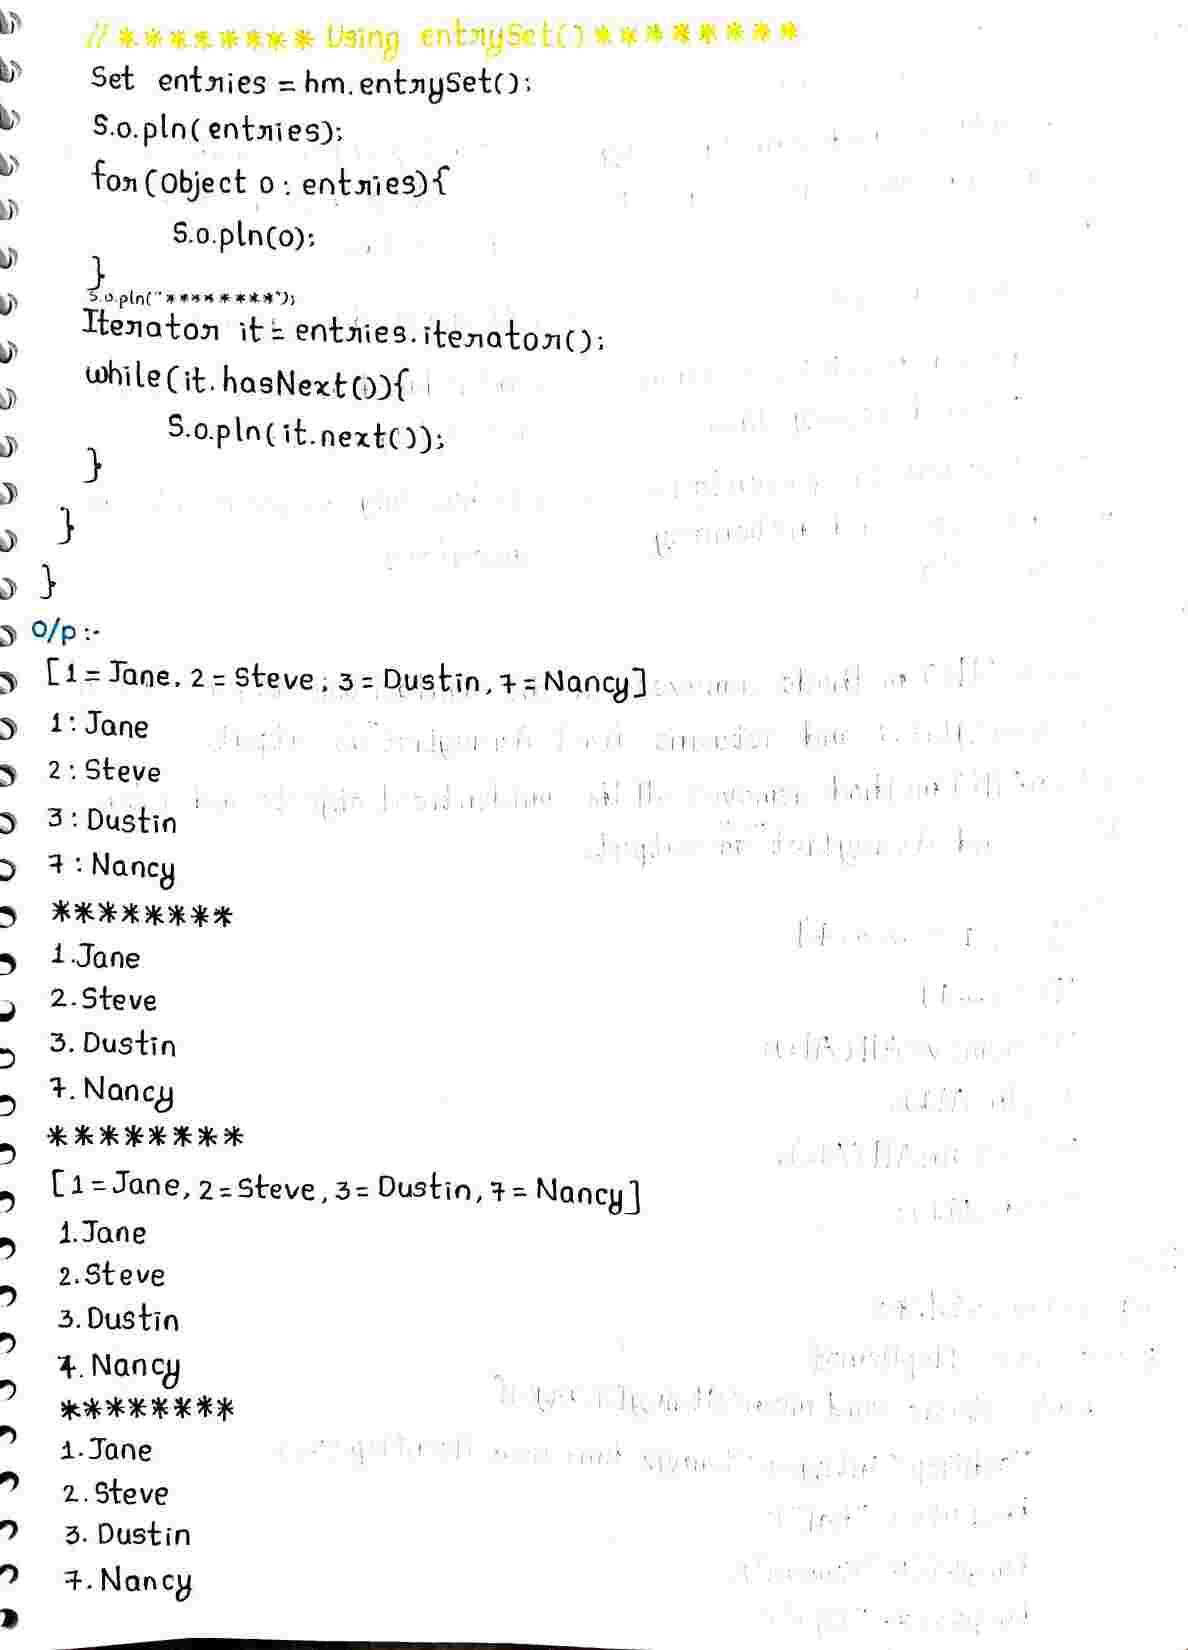 // ******** Using entrySet() ********
Set entries = hm.entrySet();
S.o.pln(entries);
for(Object o : entries){
S.o.pln(o);
}
S.o.pln("********");
Iterator it = entries.iterator();
while(it.hasNext()){
S.o.pln(it.next());
}
}
}
O/p :-
[1 = Jane, 2 = Steve, 3 = Dustin, 7 = Nancy]
1 : Jane
2 : Steve
3 : Dustin
7 : Nancy
********
1.Jane
2.Steve
3. Dustin
7. Nancy
********
[1 = Jane, 2 = Steve, 3 = Dustin, 7 = Nancy]
1.Jane
2.Steve
3.Dustin
7. Nancy
********
1.Jane
2. Steve
3. Dustin
7. Nancy